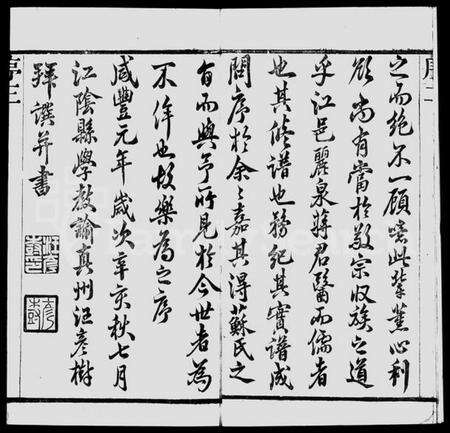 之而絕不一顧噫此葷薰心利
欲尚有當於敬宗收族之道
乎江邑麗泉蔣君醫而儒者
也其修譜也務紀其實譜成
問序於余余嘉其得蘇氏之
旨而與予所見於今世者為
不侔也故樂為之序
咸豐元年歲次辛亥秋七月
江陰縣學教諭真州汪彥樹
拜譔并書